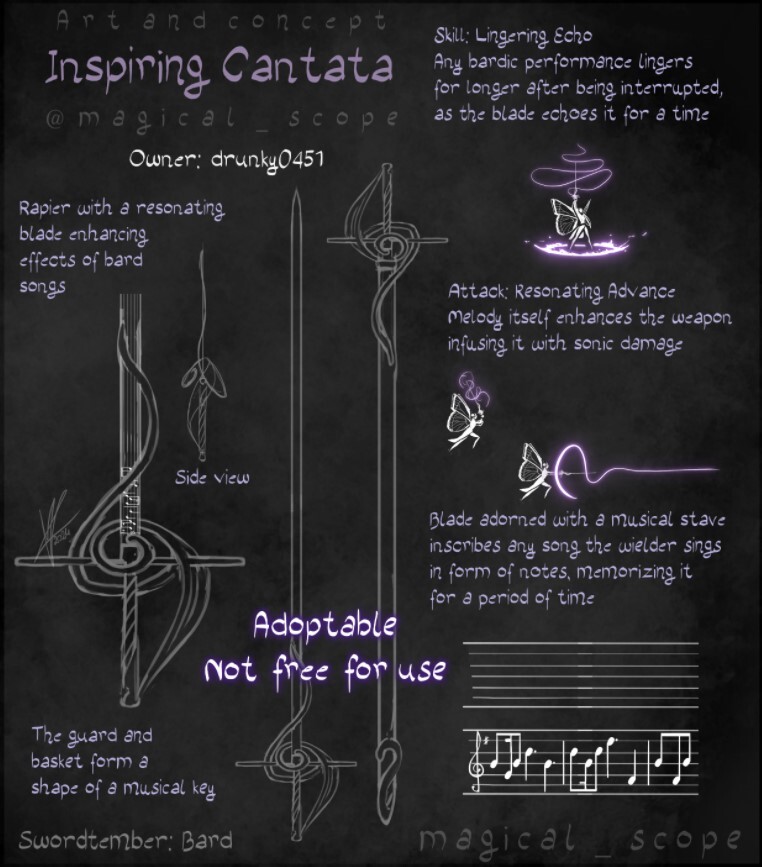 Art and concept
Inspiring Cantata
@magical_scope
Owner: drunky0451
Rapier with a resonating
blade enhancing
effects of bard
songs
Side view
The guard and
basket form a
shape of a musical key
Swordtember: Bard
Skill: Lingering Echo
Any bardic performance lingers
for longer after being interrupted,
as the blade echoes it for a time
Attack: Resonating Advance
Melody itself enhances the weapon
infusing it with sonic damage
Blade adorned with a musical stave
inscribes any song the wielder sings
in form of notes, memorizing it
for a period of time
Adoptable
Not free for use
magical_scope